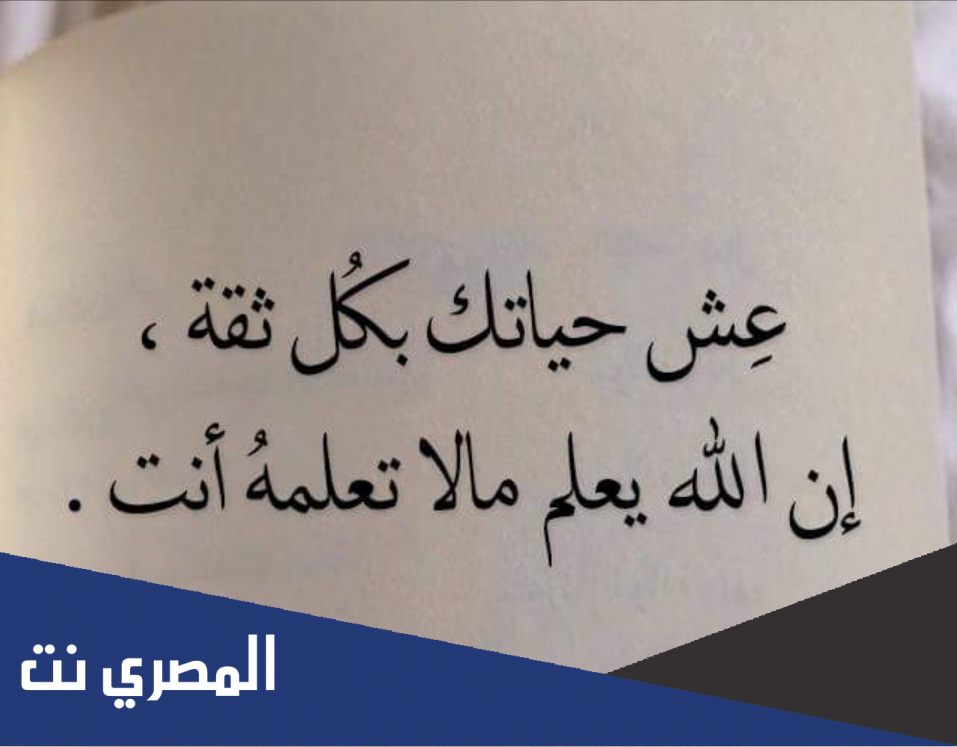 عِش حياتك بكُل ثقة ،
إن الله يعلم مالا تعلمهُ أنت .
المصري نت